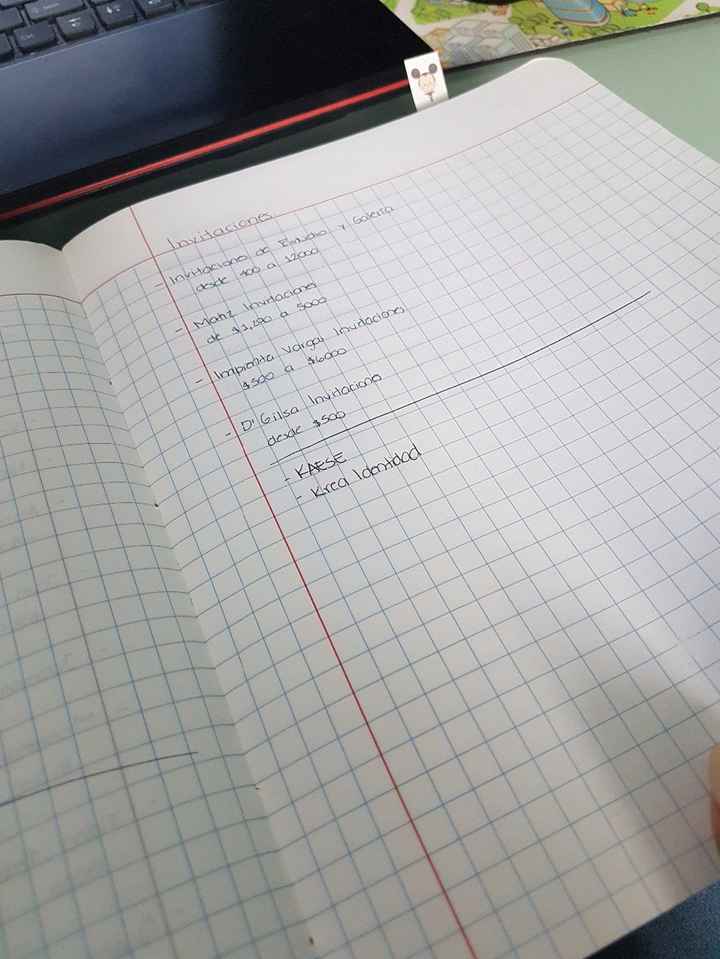 Invitaciones
- Invitaciones de Estudio y Galería
desde 400 a 12000
- Mariz Invitaciones
de $1,200 a 5000
- Imprenta Vargas Invitaciones
$500 a $6000
- D' Gilsa Invitaciones
desde $500
- KAESE
- Krea Identidad